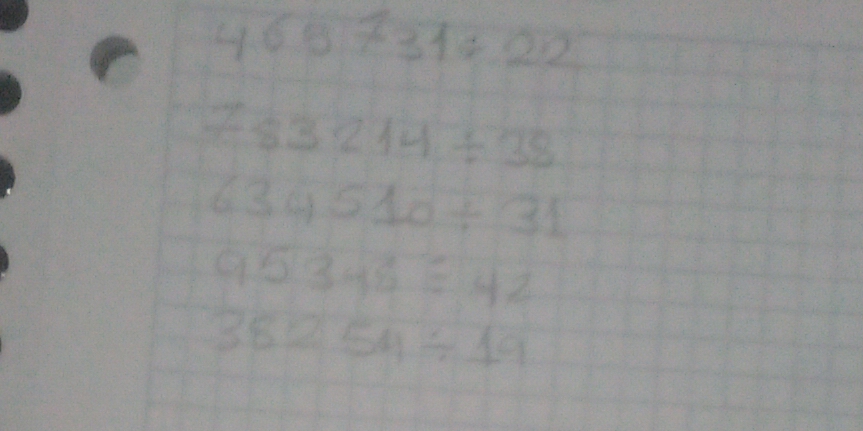 469731÷22
783214÷38
634510÷31
95348÷42
38254÷19